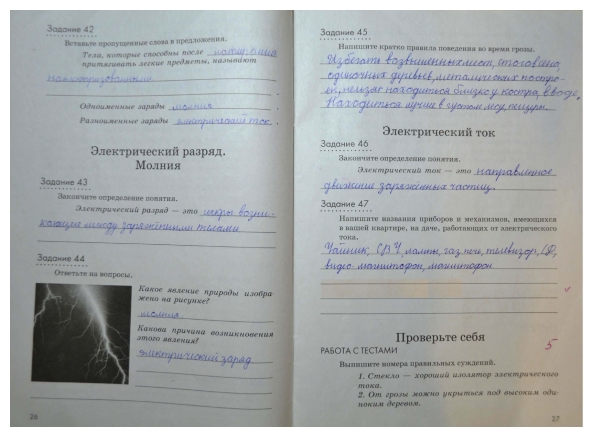 Задание 42
Вставьте пропущенные слова в предложения.
Тела, которые способны после натирания
притягивать легкие предметы, называют
наэлектризованными
Одноименные заряды молния .
Разноименные заряды электрический ток .
Электрический разряд.
Молния
Задание 43
Закончите определение понятия.
Электрический разряд — это искры возни-
кающие между заряженными телами
Задание 44
Ответьте на вопросы.
Какое явление природы изобра-
жено на рисунке?
молния.
Какова причина возникновения
этого явления?
электрический заряд
26
Задание 45
Напишите кратко правила поведения во время грозы.
Избегать возвышенных мест,
одиночных деревьев, металических построе-
к, нельзя находиться близко у костра, в воде,
Находиться лучше в густом лесу, пещеры.
Электрический ток
Задание 46
Закончите определение понятия.
Электрический ток — это направленное
движение заряженных частиц.
Задание 47
Напишите названия приборов и механизмов, имеющихся
в вашей квартире, на даче, работающих от электрического
тока.
Чайник, СВЧ, лампы, газ печь, телевизор,
видео-магнитофон, магнитофон
Проверьте себя
РАБОТА С ТЕСТАМИ
5
Выпишите номера правильных суждений.
1. Стекло — хороший изолятор электрического
тока.
2. От грозы можно укрыться под высоким оди-
ноким деревом.
27